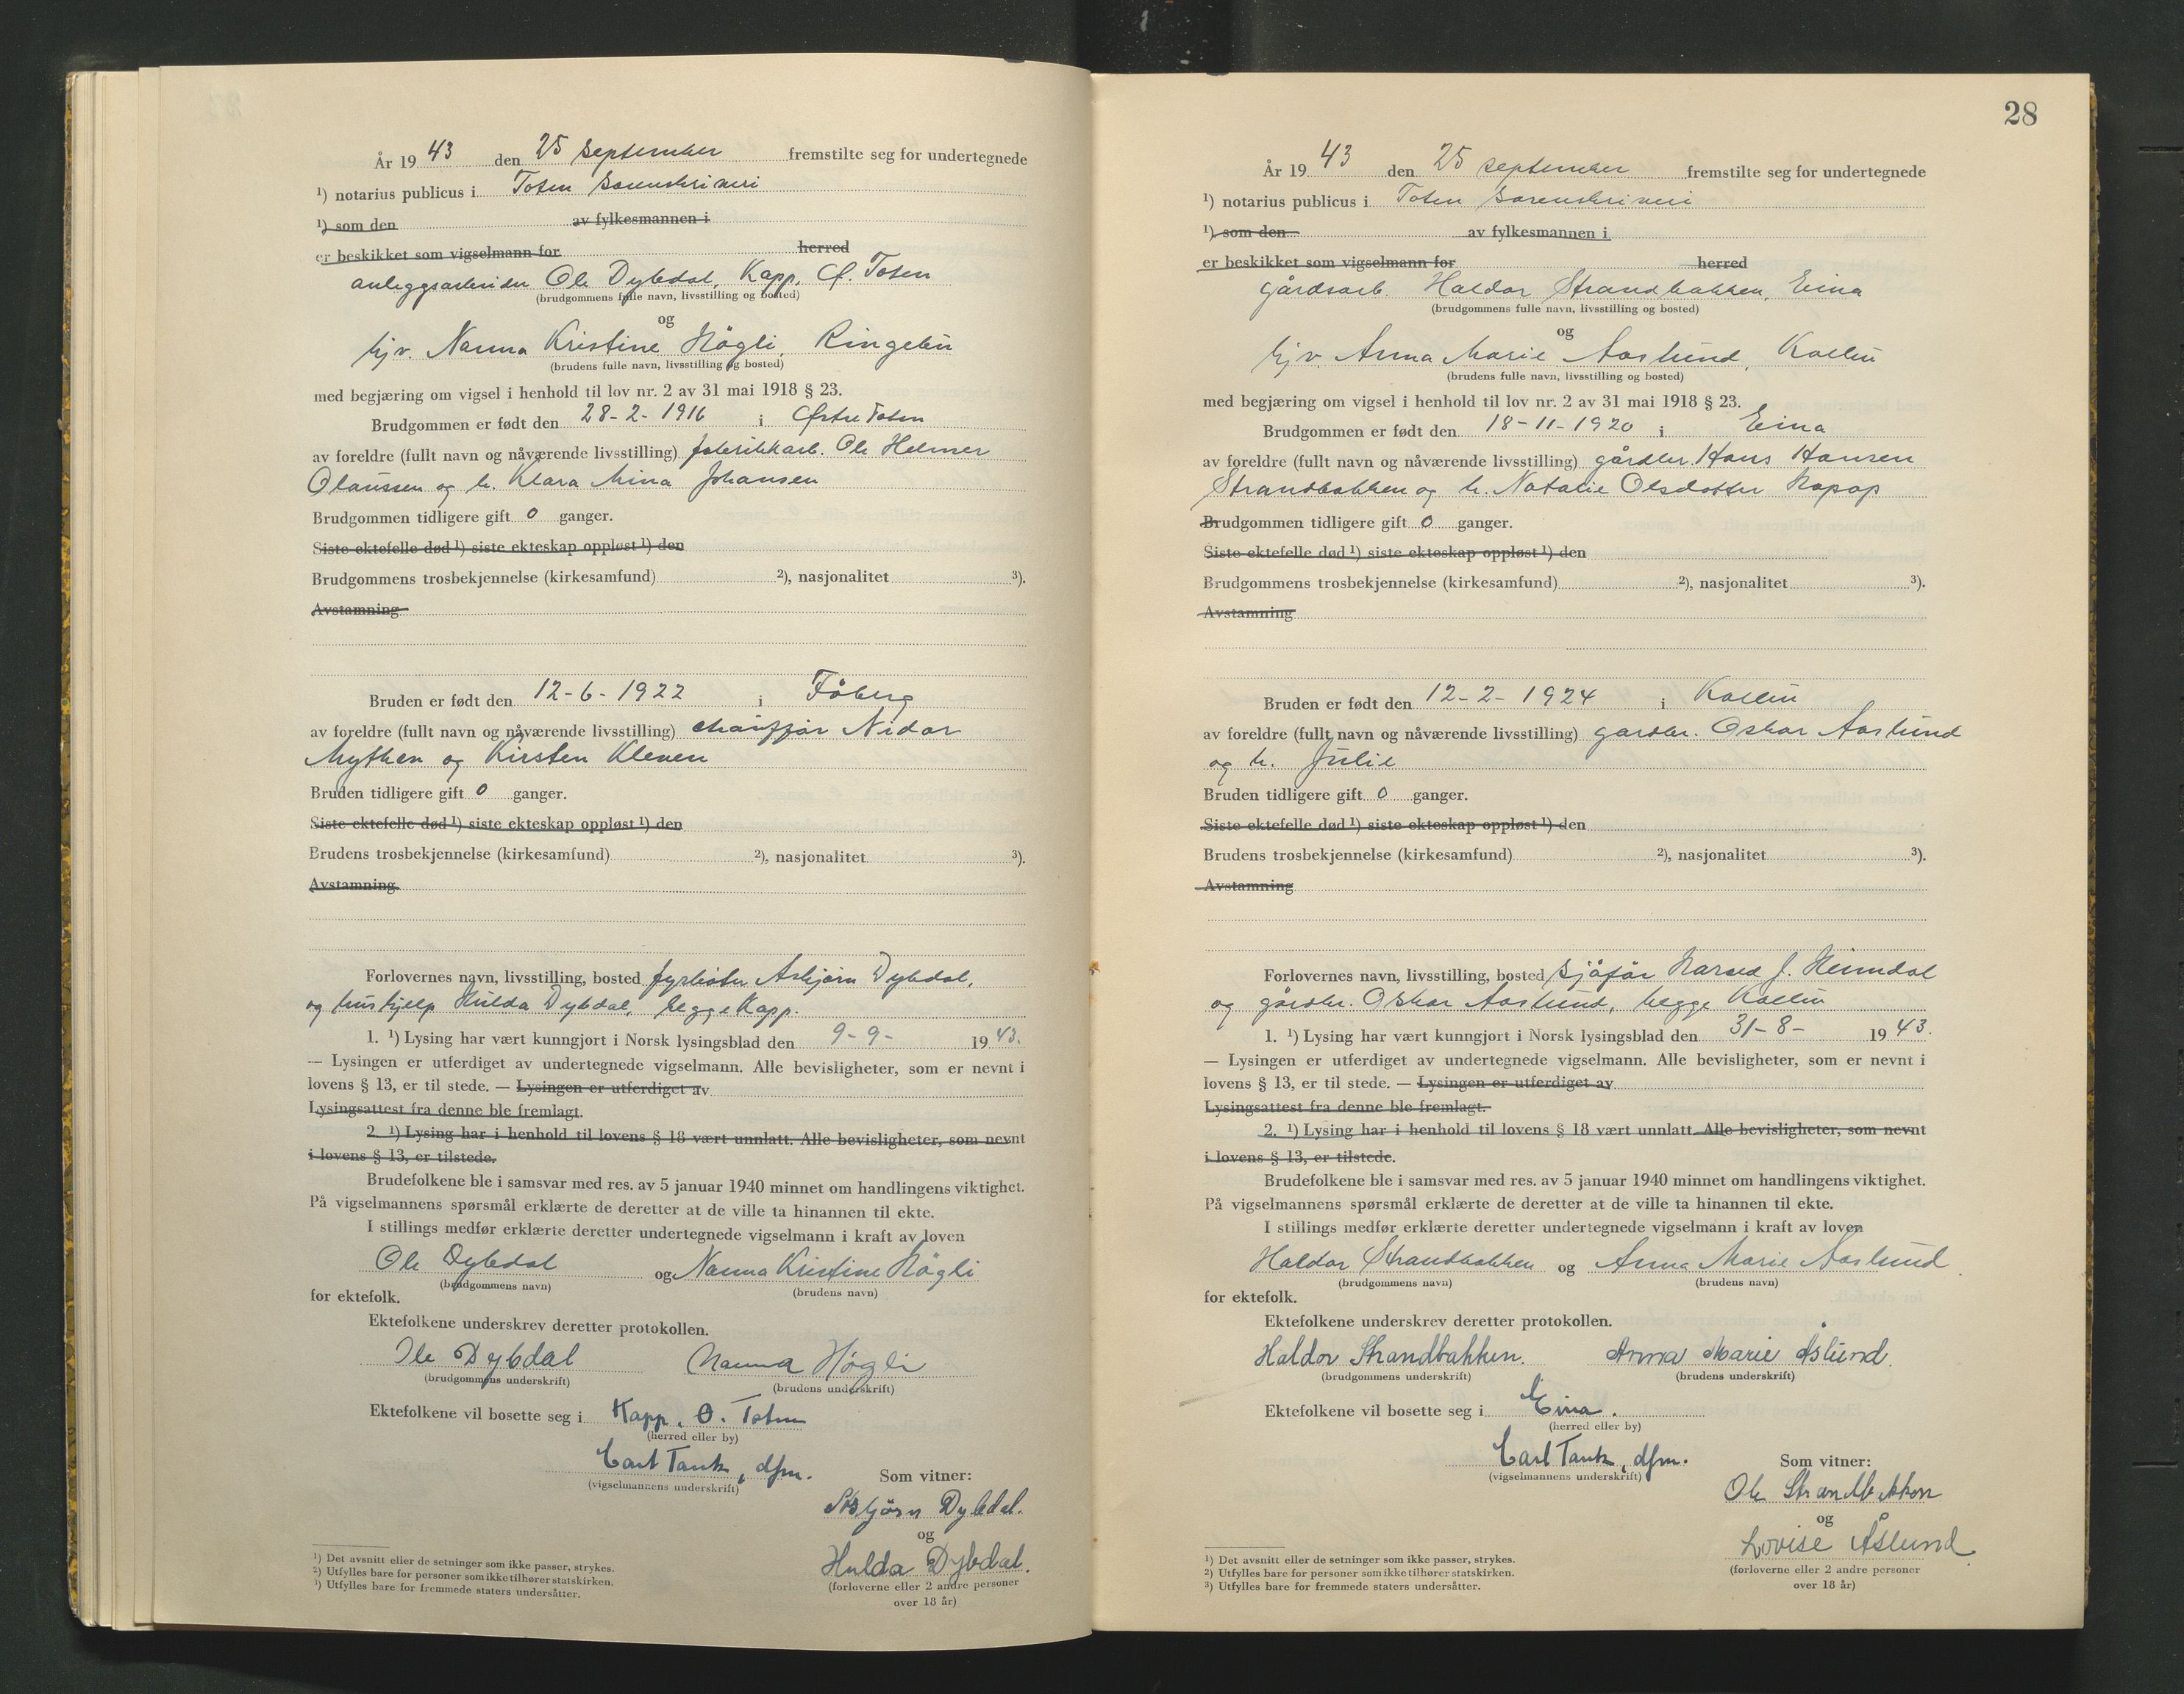 År 19 43 den 25 september fremstilte seg for undertegnede
¹) notarius publicus i Toten sorenskriveri
¹) som den av fylkesmannen i
er beskikket som vigselmann for herred
anleggsarbeider Ole Dybdal, Kapp, Ø. Toten
(brudgommens fulle navn, livsstilling og bosted)
og
hjv. Nanna Kristine Høgli, Ringebu
(brudens fulle navn, livsstilling og bosted)
med begjæring om vigsel i henhold til lov nr. 2 av 31 mai 1918 § 23.
Brudgommen er født den 28-2-1916 i Østre Toten
av foreldre (fullt navn og nåværende livsstilling) fabrikkarb. Ole Helmer
Olaussen og h. Klara Mina Johansen
Brudgommen tidligere gift 0 ganger.
Siste ektefelle død ¹) siste ekteskap oppløst ¹) den
Brudgommens trosbekjennelse (kirkesamfund) ²), nasjonalitet ³).
Avstamning
Bruden er født den 12-6-1922 i Fåberg
av foreldre (fullt navn og nåværende livsstilling) chauffør Nidar
Mythen og Kirsten Kleven
Bruden tidligere gift 0 ganger.
Siste ektefelle død ¹) siste ekteskap oppløst ¹) den
Brudens trosbekjennelse (kirkesamfund) ²), nasjonalitet ³).
Avstamning
Forlovernes navn, livsstilling, bosted fyrbøter Asbjørn Dybdal,
og hushjelp Hulda Dybdal, begge Kapp.
1. ¹) Lysing har vært kunngjort i Norsk lysingsblad den 9-9- 19 43.
— Lysingen er utferdiget av undertegnede vigselmann. Alle bevisligheter, som er nevnt i
lovens § 13, er til stede. — Lysingen er utferdiget av
Lysingsattest fra denne ble fremlagt.
2. ¹) Lysing har i henhold til lovens § 18 vært unnlatt. Alle bevisligheter, som nevnt
i lovens § 13, er tilstede.
Brudefolkene ble i samsvar med res. av 5 januar 1940 minnet om handlingens viktighet.
På vigselmannens spørsmål erklærte de deretter at de ville ta hinannen til ekte.
I stillings medfør erklærte deretter undertegnede vigselmann i kraft av loven
Ole Dybdal og Nanna Kristine Høgli
(brudgommens navn) (brudens navn)
for ektefolk.
Ektefolkene underskrev deretter protokollen.
Ole Dybdal Nanna Høgli
(brudgommens underskrift) (brudens underskrift)
Ektefolkene vil bosette seg i Kapp, Ø. Toten
(herred eller by)
Carl Tank, dfm.
(vigselmannens underskrift)
Som vitner:
Asbjørn Dybdal.
og
Hulda Dybdal.
(forloverne eller 2 andre personer
over 18 år)
¹) Det avsnitt eller de setninger som ikke passer, strykes.
²) Utfylles bare for personer som ikke tilhører statskirken.
³) Utfylles bare for fremmede staters undersåtter.
28
År 19 43 den 25 september fremstilte seg for undertegnede
¹) notarius publicus i Toten sorenskriveri
¹) som den av fylkesmannen i
er beskikket som vigselmann for herred
gårdsarb. Haldor Strandbakken, Eina
(brudgommens fulle navn, livsstilling og bosted)
og
hjv. Anna Marie Aaslund, Kolbu
(brudens fulle navn, livsstilling og bosted)
med begjæring om vigsel i henhold til lov nr. 2 av 31 mai 1918 § 23.
Brudgommen er født den 18-11-1920 i Eina
av foreldre (fullt navn og nåværende livsstilling) gårdbr. Hans Hansen
Strandbakken og h. Natalie Olsdatter
Brudgommen tidligere gift 0 ganger.
Siste ektefelle død ¹) siste ekteskap oppløst ¹) den
Brudgommens trosbekjennelse (kirkesamfund) ²), nasjonalitet ³).
Avstamning
Bruden er født den 12-2-1924 i Kolbu
av foreldre (fullt navn og nåværende livsstilling) gårdbr. Oskar Aaslund
og h. Julie
Bruden tidligere gift 0 ganger.
Siste ektefelle død ¹) siste ekteskap oppløst ¹) den
Brudens trosbekjennelse (kirkesamfund) ²), nasjonalitet ³).
Avstamning
Forlovernes navn, livsstilling, bosted sjåfør J. Heimdal
og gårdbr. Oskar Aaslund, begge Kolbu
1. ¹) Lysing har vært kunngjort i Norsk lysingsblad den 31-8- 19 43.
— Lysingen er utferdiget av undertegnede vigselmann. Alle bevisligheter, som er nevnt i
lovens § 13, er til stede. — Lysingen er utferdiget av
Lysingsattest fra denne ble fremlagt.
2. ¹) Lysing har i henhold til lovens § 18 vært unnlatt. Alle bevisligheter, som nevnt
i lovens § 13, er tilstede.
Brudefolkene ble i samsvar med res. av 5 januar 1940 minnet om handlingens viktighet.
På vigselmannens spørsmål erklærte de deretter at de ville ta hinannen til ekte.
I stillings medfør erklærte deretter undertegnede vigselmann i kraft av loven
Haldor Strandbakken og Anna Marie Aaslund
(brudgommens navn) (brudens navn)
for ektefolk.
Ektefolkene underskrev deretter protokollen.
Haldor Strandbakken. Anna Marie Åslund.
(brudgommens underskrift) (brudens underskrift)
Ektefolkene vil bosette seg i Eina.
(herred eller by)
Carl Tank, dfm.
(vigselmannens underskrift)
Som vitner:
Ole Strandbakken
og
Lovise Åslund
(forloverne eller 2 andre personer
over 18 år)
¹) Det avsnitt eller de setninger som ikke passer, strykes.
²) Utfylles bare for personer som ikke tilhører statskirken.
³) Utfylles bare for fremmede staters undersåtter.